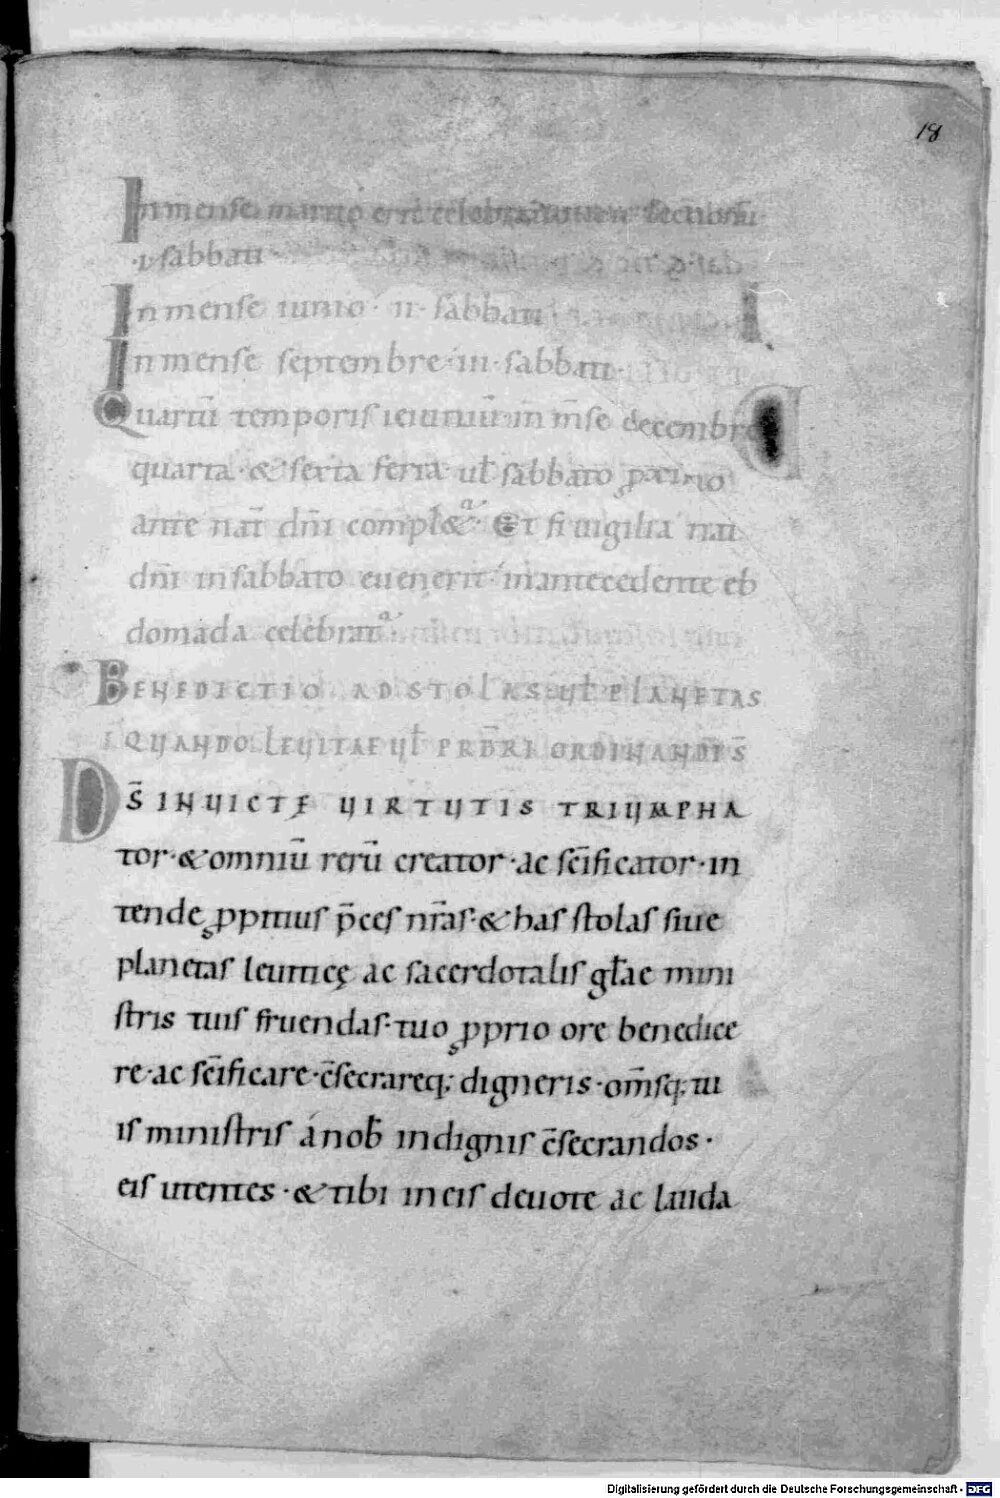 18
In mense martio
·i· sabbati
In mense iunio · ii · sabbati
In mense septembre · iii · sabbati ·
Quartū temporis ieiuniū in m̄se decembre
quarta · & sexta feria uł sabbato ꝓximo
ante nat̄ dn̄i compł&ᵃ·: Et si uigilia nat̄
dn̄i in sabbato euenerit · in antecedente eb
domada celebrat̄ᵃ·
BENEDICTIO AD STOLAS UŁ PLANETAS
QUANDO LEUITAE UŁ PRB̄RI ORDINANDI S̄
DS̄ INUICTE UIRTUTIS TRIUMPHA
tor · & omniū rerū creator · ac sc̄ificator · in
tende ꝓpitius p̄ces nr̄as · & has stolas siue
planetas leuiticę ac sacerdotalis gł̄ae mini
stris tuis fruendas · tuo ꝓprio ore benedice
re · ac sc̄ificare · c̄secrareq; digneris · om̄sq; tu
is ministris a nob̄ indignis c̄secrandos ·
eis utentes · & tibi in eis deuote ac lauda
Digitalisierung gefördert durch die Deutsche Forschungsgemeinschaft - DFG